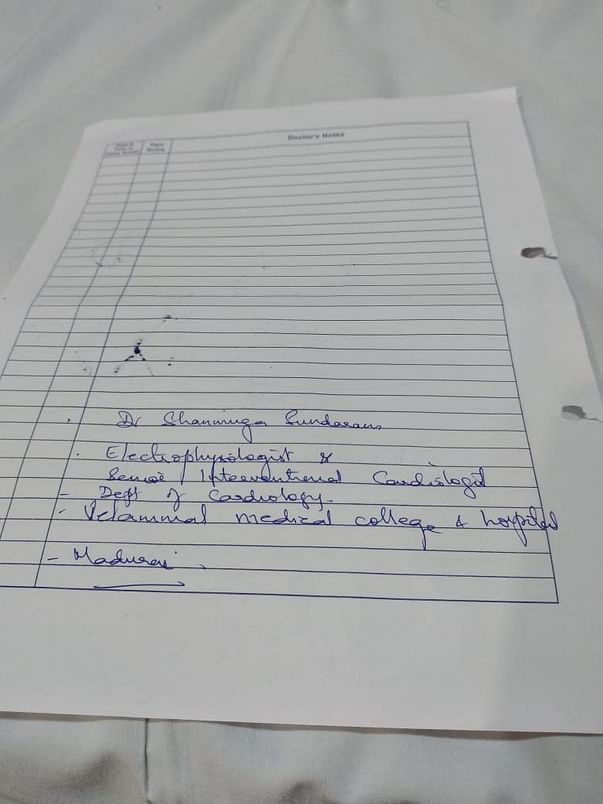 Doctor's Notes
Dr Shanmuga Sundaram
Electrophysiologist &
Senior Interventional Cardiologist
- Dept of Cardiology.
- Velammal medical college & hospital
- Madurai.